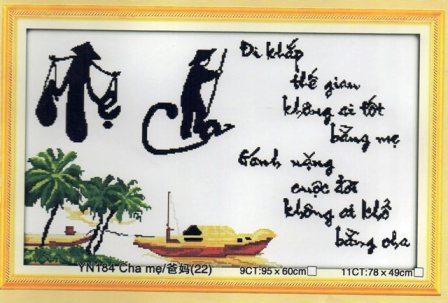 Mẹ Cha
Đi khắp
thế gian
không ai tốt
bằng mẹ
Gánh nặng
cuộc đời
không ai khổ
bằng cha
YN184 Cha mẹ/爸妈(22)
9CT:95 x 60cm
11CT:78 x 49cm